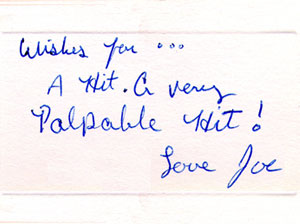 Wishes for ...
A Hit. A very
Palpable Hit!
Love Joe